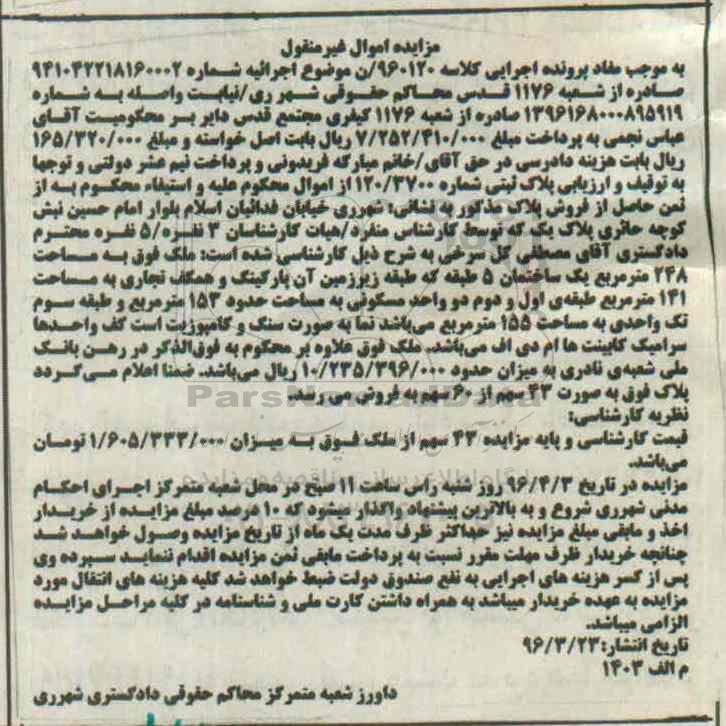 مزایده اموال غیرمنقول
به موجب مفاد پرونده اجرایی کلاسه ۹۶۰۱۲۰/ن موضوع اجرائیه شماره ۹۴۱۰۴۲۲۱۸۱۶۰۰۰۲
صادره از شعبه ۱۱۷۶ قدس محاکم حقوقی شهر ری/نیابت واصله به شماره
۱۳۹۶۱۶۸۰۰۰۸۹۵۹۱۹ صادره از شعبه ۱۱۷۶ کیفری مجتمع قدس دایر بر محکومیت آقای
عباس نجمی به پرداخت مبلغ ۷/۲۵۲/۴۱۰/۰۰۰ ریال بابت اصل خواسته و مبلغ ۱۶۵/۳۲۰/۰۰۰
ریال بابت هزینه دادرسی در حق آقای/خانم مبارکه فریدونی و پرداخت نیم عشر دولتی و توجها
به توقیف و ارزیابی پلاک ثبتی شماره ۱۲۰/۳۷۰۰ از اموال محکوم علیه و استیفاء محکوم به از
ثمن حاصل از فروش پلاک مذکور به نشانی: شهرری خیابان فدائیان اسلام بلوار امام حسین نبش
کوچه حائری پلاک یک که توسط کارشناس منفرد/هیات کارشناسان ۳ نفره/۵ نفره محترم
دادگستری آقای مصطفی گل سرخی به شرح ذیل کارشناسی شده است: ملک فوق به مساحت
۲۴۸ مترمربع یک ساختمان ۵ طبقه که طبقه زیرزمین آن پارکینگ و همکف تجاری به مساحت
۱۴۱ مترمربع طبقه‌ی اول و دوم دو واحد مسکونی به مساحت حدود ۱۵۳ مترمربع و طبقه سوم
تک واحدی به مساحت ۱۵۵ مترمربع می‌باشد نما به صورت سنگ و کامپوزیت است کف واحدها
سرامیک کابینت ها ام دی اف می‌باشد. ملک فوق علاوه بر محکوم به فوق‌الذکر در رهن بانک
ملی شعبه‌ی نادری به میزان حدود ۱۰/۲۳۵/۳۹۶/۰۰۰ ریال می‌باشد. ضمنا اعلام می‌گردد
پلاک فوق به صورت ۴۳ سهم از ۶۰ سهم به فروش می رسد.
ParsNamadData
نظریه کارشناسی:
قیمت کارشناسی و پایه مزایده ۴۳ سهم از ملک فوق به میزان ۱/۶۰۵/۳۳۳/۰۰۰ تومان
می‌باشد.
مزایده در تاریخ ۹۶/۴/۳ روز شنبه راس ساعت ۱۱ صبح در محل شعبه متمرکز اجرای احکام
مدنی شهرری شروع و به بالاترین پیشنهاد واگذار میشود که ۱۰ درصد مبلغ مزایده از خریدار
اخذ و مابقی مبلغ مزایده نیز حداکثر ظرف مدت یک ماه از تاریخ مزایده وصول خواهد شد
چنانچه خریدار ظرف مهلت مقرر نسبت به پرداخت مابقی ثمن مزایده اقدام ننماید سپرده وی
پس از کسر هزینه های اجرایی به نفع صندوق دولت ضبط خواهد شد کلیه هزینه های انتقال مورد
مزایده به عهده خریدار میباشد به همراه داشتن کارت ملی و شناسنامه در کلیه مراحل مزایده
الزامی میباشد.
تاریخ انتشار:۹۶/۳/۲۳
م الف ۱۴۰۳
داورز شعبه متمرکز محاکم حقوقی دادگستری شهرری